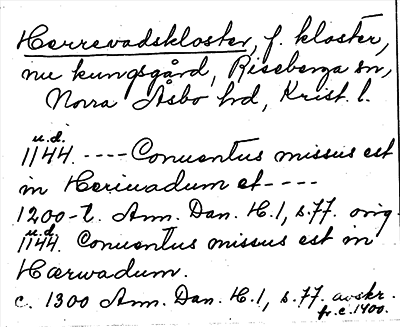 Herrevadskloster, f. kloster,
nu kungsgård, Riseberga sn,
Norra Åsbo hd, Krist. l.
u.d.
1144. ---- Conventus missus est
in Heriuadum et ----
1200-t. Ann. Dan. H. 1, s. 77. orig.
u.d.
1144. Conventus missus est in
Hærwadum.
c. 1300 Ann. Dan. H. 1, s. 77. avskr.
fr. c. 1400.